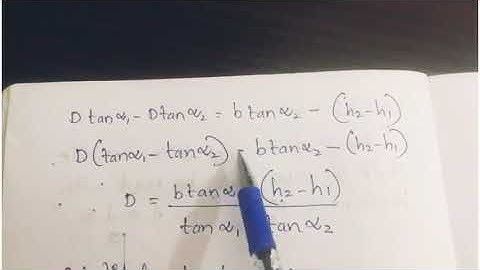 D tanα₁ - D tanα₂ = b tanα₂ - (h₂-h₁)
D(tanα₁ - tanα₂) = b tanα₂ - (h₂-h₁)
∴ D = b tanα (h₂-h₁)
tanα₁ tanα₂